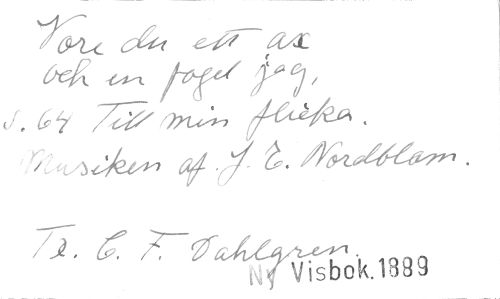 Vore du ett ax
och en fogel jag,
s. 64 Till min flicka.
Musiken af J. E. Nordblom.
Tx. C. F. Dahlgren.
Ny Visbok. 1889